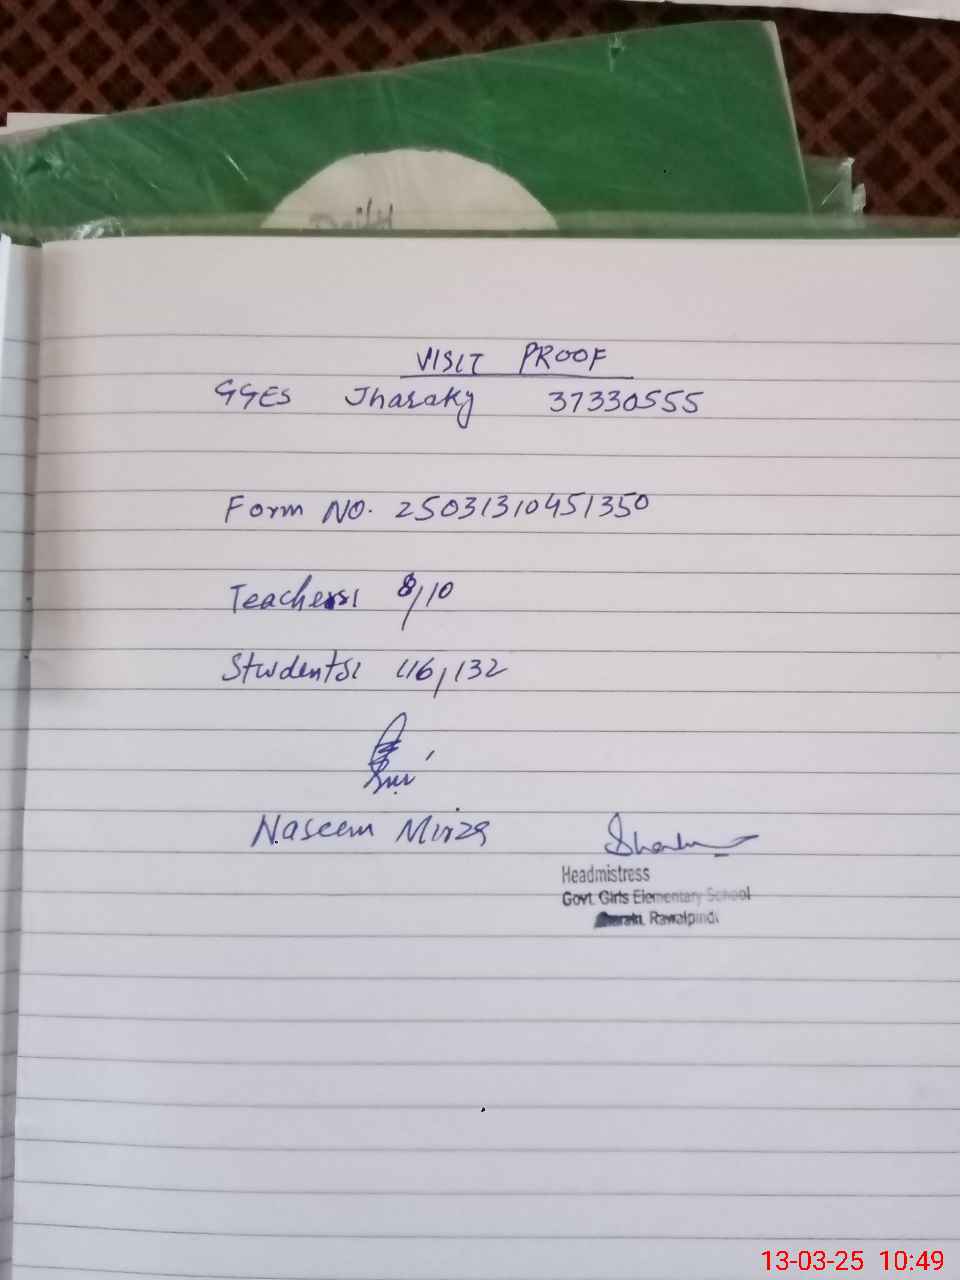 Daily
VISIT PROOF
GGES Jharaky 37330555
Form NO. 25031310451350
Teachers: 8/10
Students: 116/132
Naseem Mirza
Headmistress
Govt. Girls Elementary School
Jharaki, Rawalpindi
13-03-25 10:49